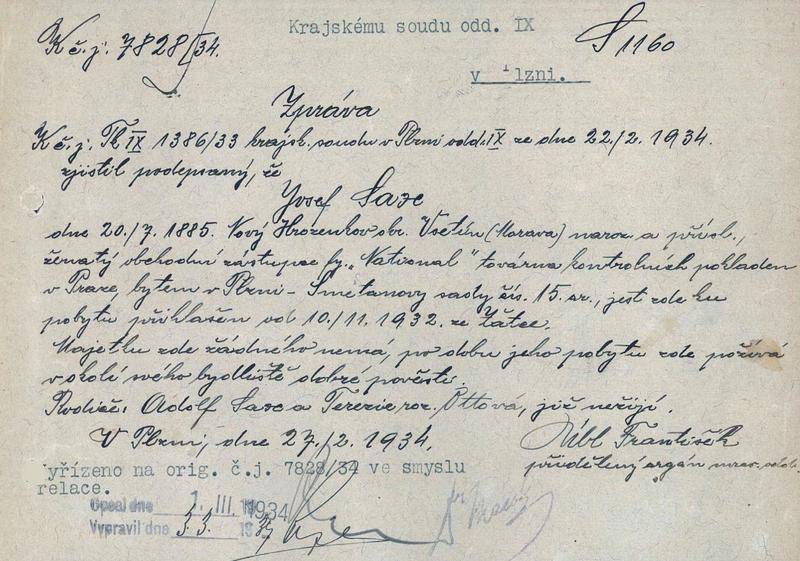 Krajskému soudu odd. IX
K č.j. 7828/34.
S 1160
v Plzni.
Zpráva
K č.j. Tk IX 1386/33 krajsk. soudu v Plzni odd. IX ze dne 22./2. 1934.
zjistil podepsaný, že
Josef Saxe
dne 20./7. 1885. Nový Hrozenkov okr. Vsetín (Morava) naroz. a přísl.,
ženatý obchodní zástupce fy. „National" továrna kontrolních pokladen
v Praze, bytem v Plzni - Smetanovy sady čís. 15. jest zde ku
pobytu přihlášen od 10./11. 1932. ze Žatce.
Majetku zde žádného nemá, po dobu jeho pobytu zde požívá
v okolí svého bydliště dobré pověsti.
Rodiče: Adolf Saxe a Terezie roz. Ottová, již nežijí.
V Plzni, dne 27./2. 1934.
František
přidělený orgán
vyřízeno na orig. č.j. 7828/34 ve smyslu
relace.
Opsal dne 1. III. 1934
Vypravil dne 3.3. 34